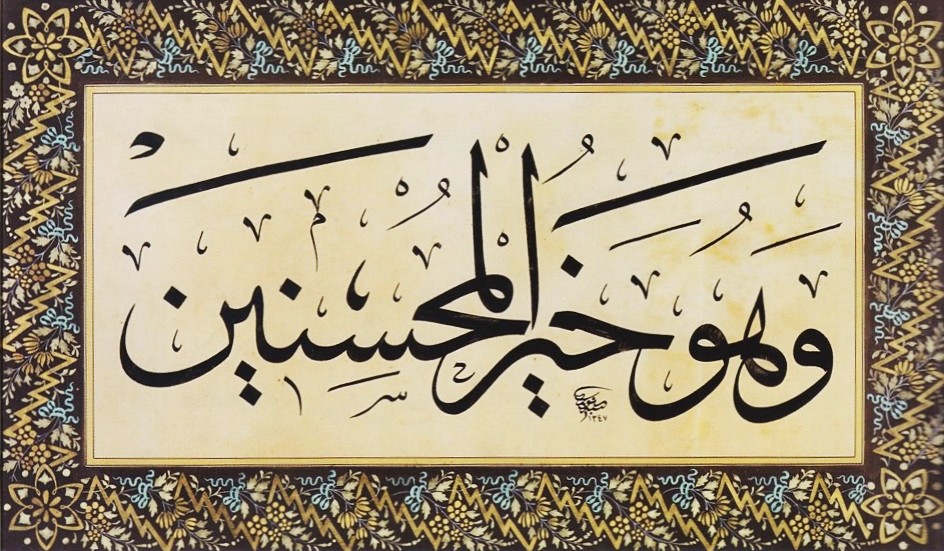 وَهُوَ خَيْرُ الْمُحْسِنِينَ
١٣٤٧